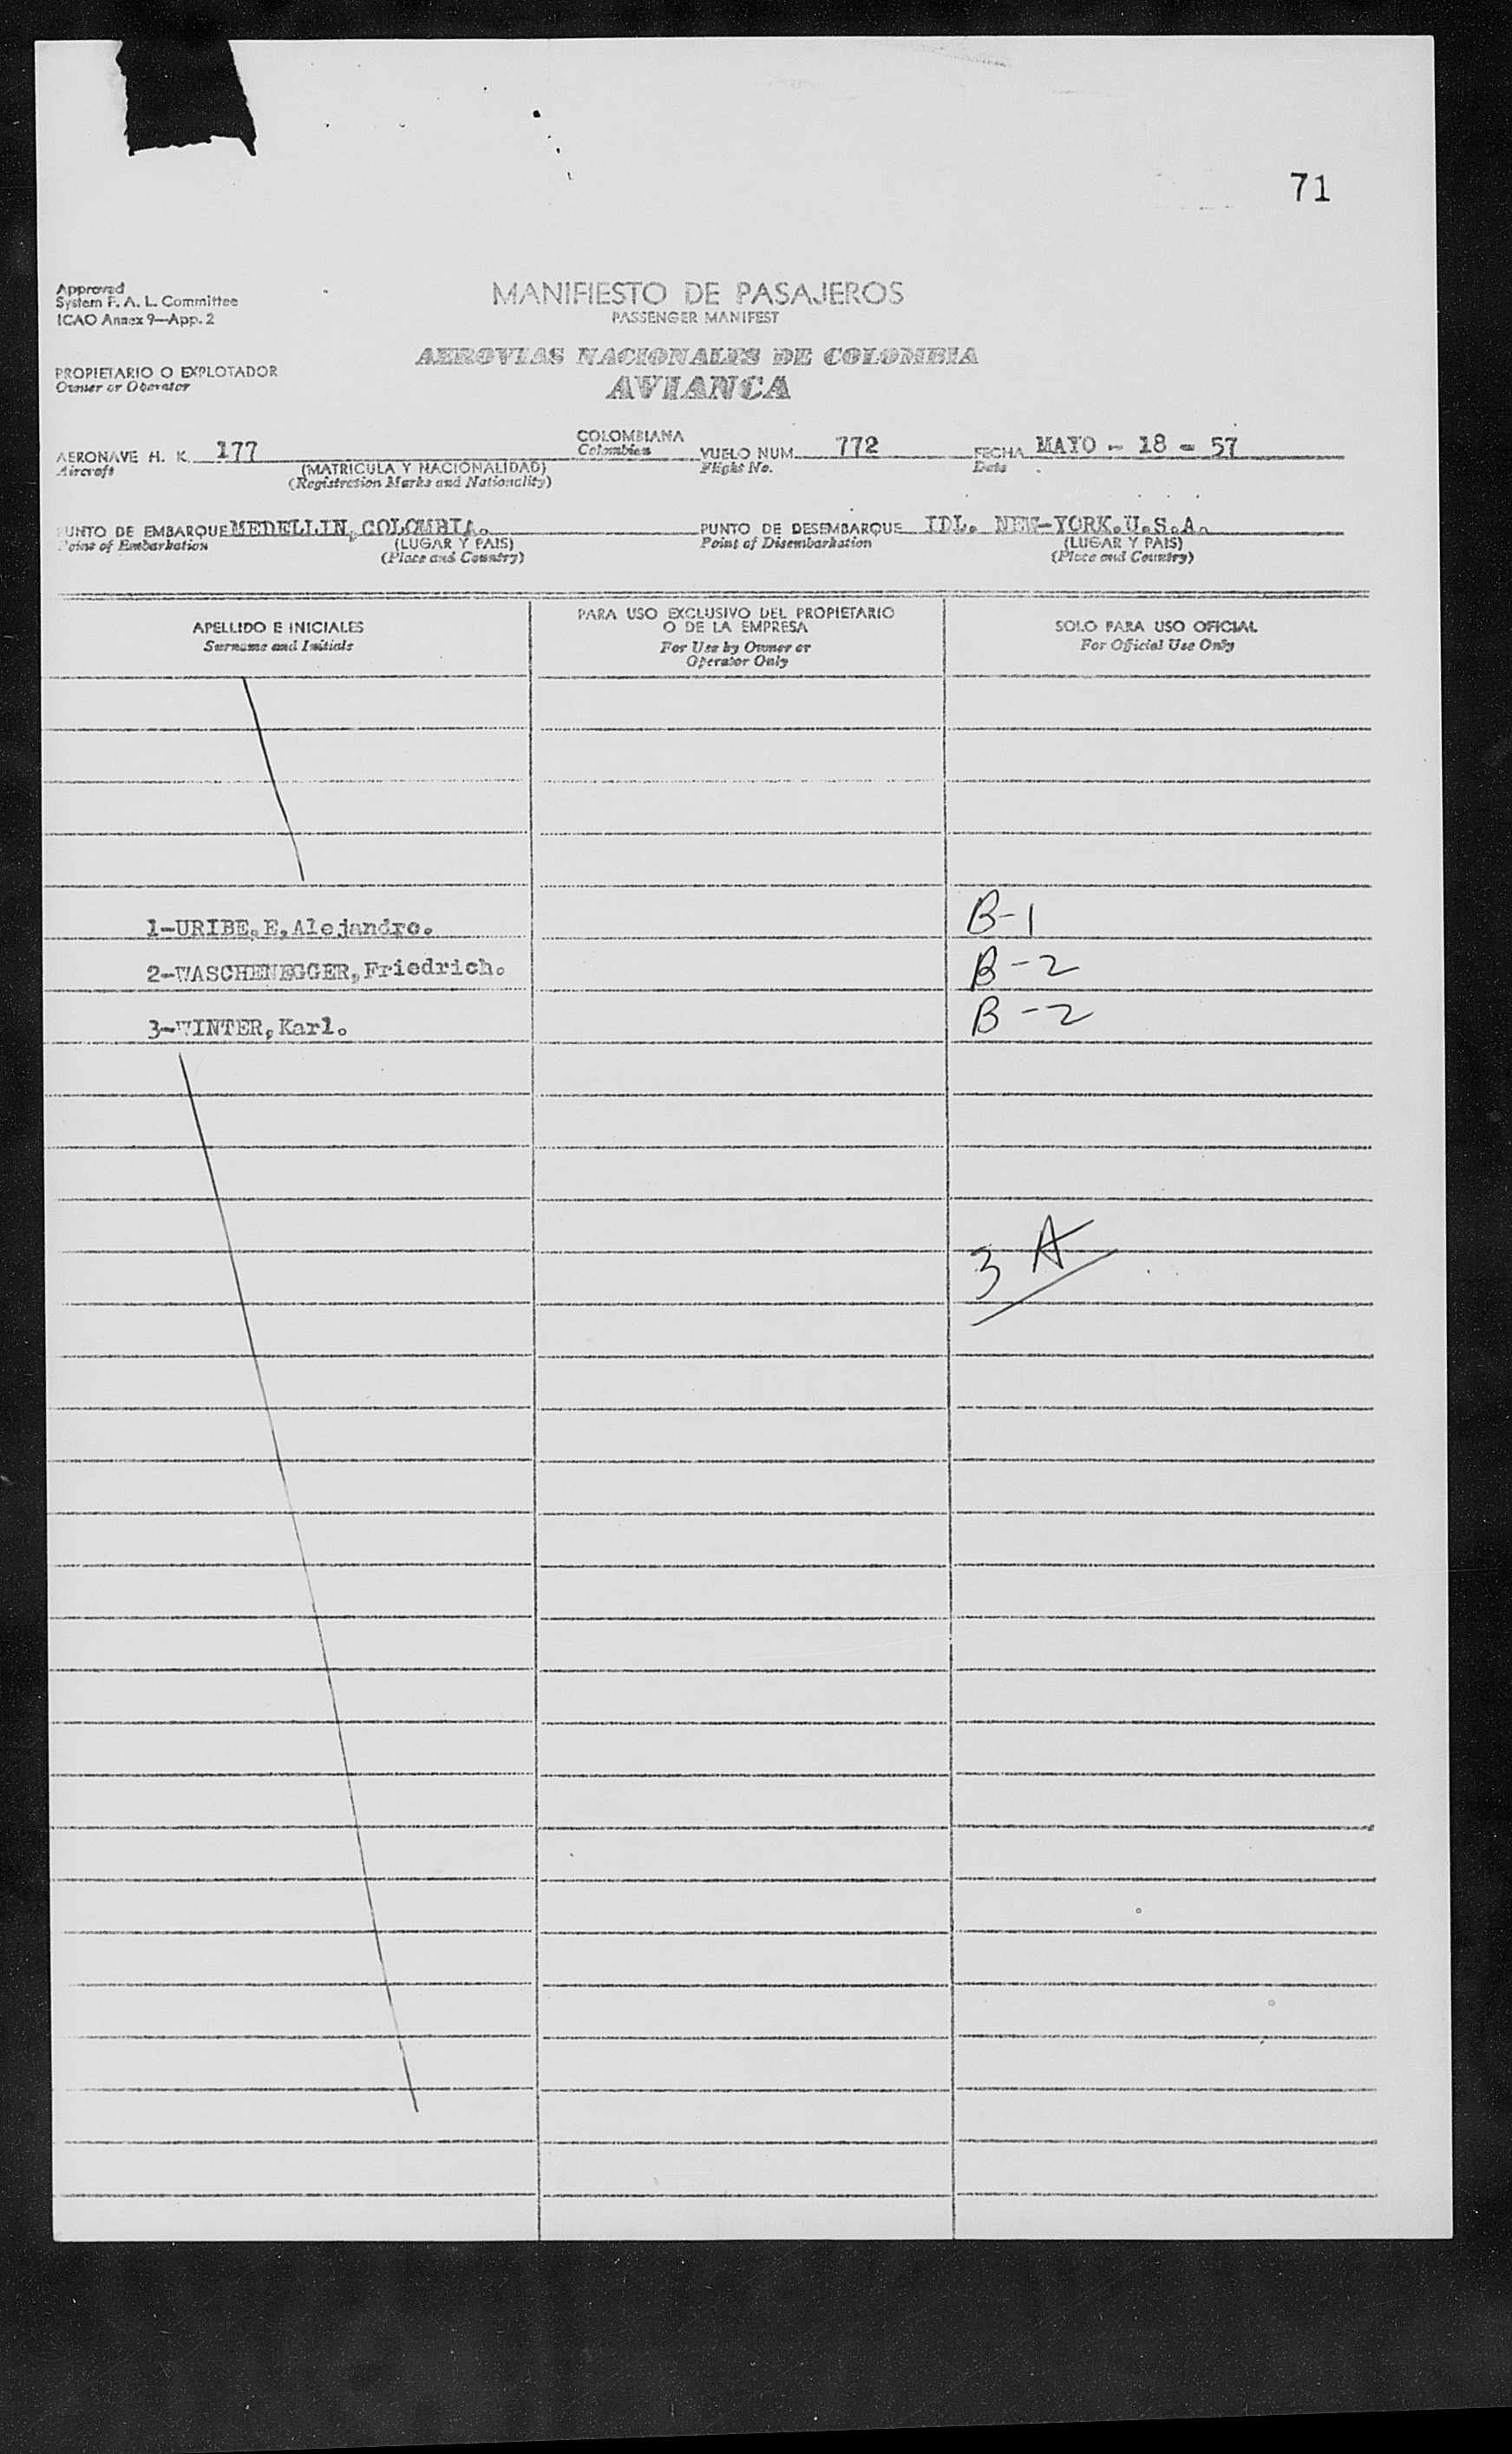 71
Approved
System F. A. L. Committee
ICAO Annex 9—App. 2
MANIFIESTO DE PASAJEROS
PASSENGER MANIFEST
AEROVIAS NACIONALES DE COLOMBIA
AVIANCA
PROPIETARIO O EXPLOTADOR
Owner or Operator
AERONAVE H. K. 177 COLOMBIANA VUELO NUM. 772 FECHA MAYO - 18 - 57
Aircraft (MATRICULA Y NACIONALIDAD) Colombian Flight No. Date
(Registration Marks and Nationality)
PUNTO DE EMBARQUE MEDELLIN, COLOMBIA. PUNTO DE DESEMBARQUE IDL. NEW-YORK.U.S.A.
Point of Embarkation (LUGAR Y PAIS) Point of Disembarkation (LUGAR Y PAIS)
(Place and Country) (Place and Country)
APELLIDO E INICIALES
Surname and Initials
PARA USO EXCLUSIVO DEL PROPIETARIO
O DE LA EMPRESA
For Use by Owner or
Operator Only
SOLO PARA USO OFICIAL
For Official Use Only
1-URIBE,E,Alejandro. B-1
2-WASCHENEGGER,Friedrich. B-2
3-WINTER,Karl. B-2
3 A